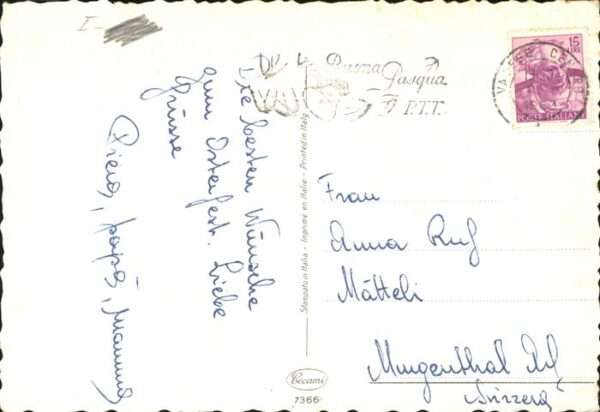 I-
Die besten Wünsche
zum Osterfest. Liebe
Grüsse
Piero, papà, Mamma
Buona
Pasqua
P.T.T.
15
POSTE ITALIANE
Stampato in Italia - Imprimé en Italie - Printed in Italy
Frau
Anna Ruf
Mätteli
Murgenthal
Svizzera
Cecami
7366